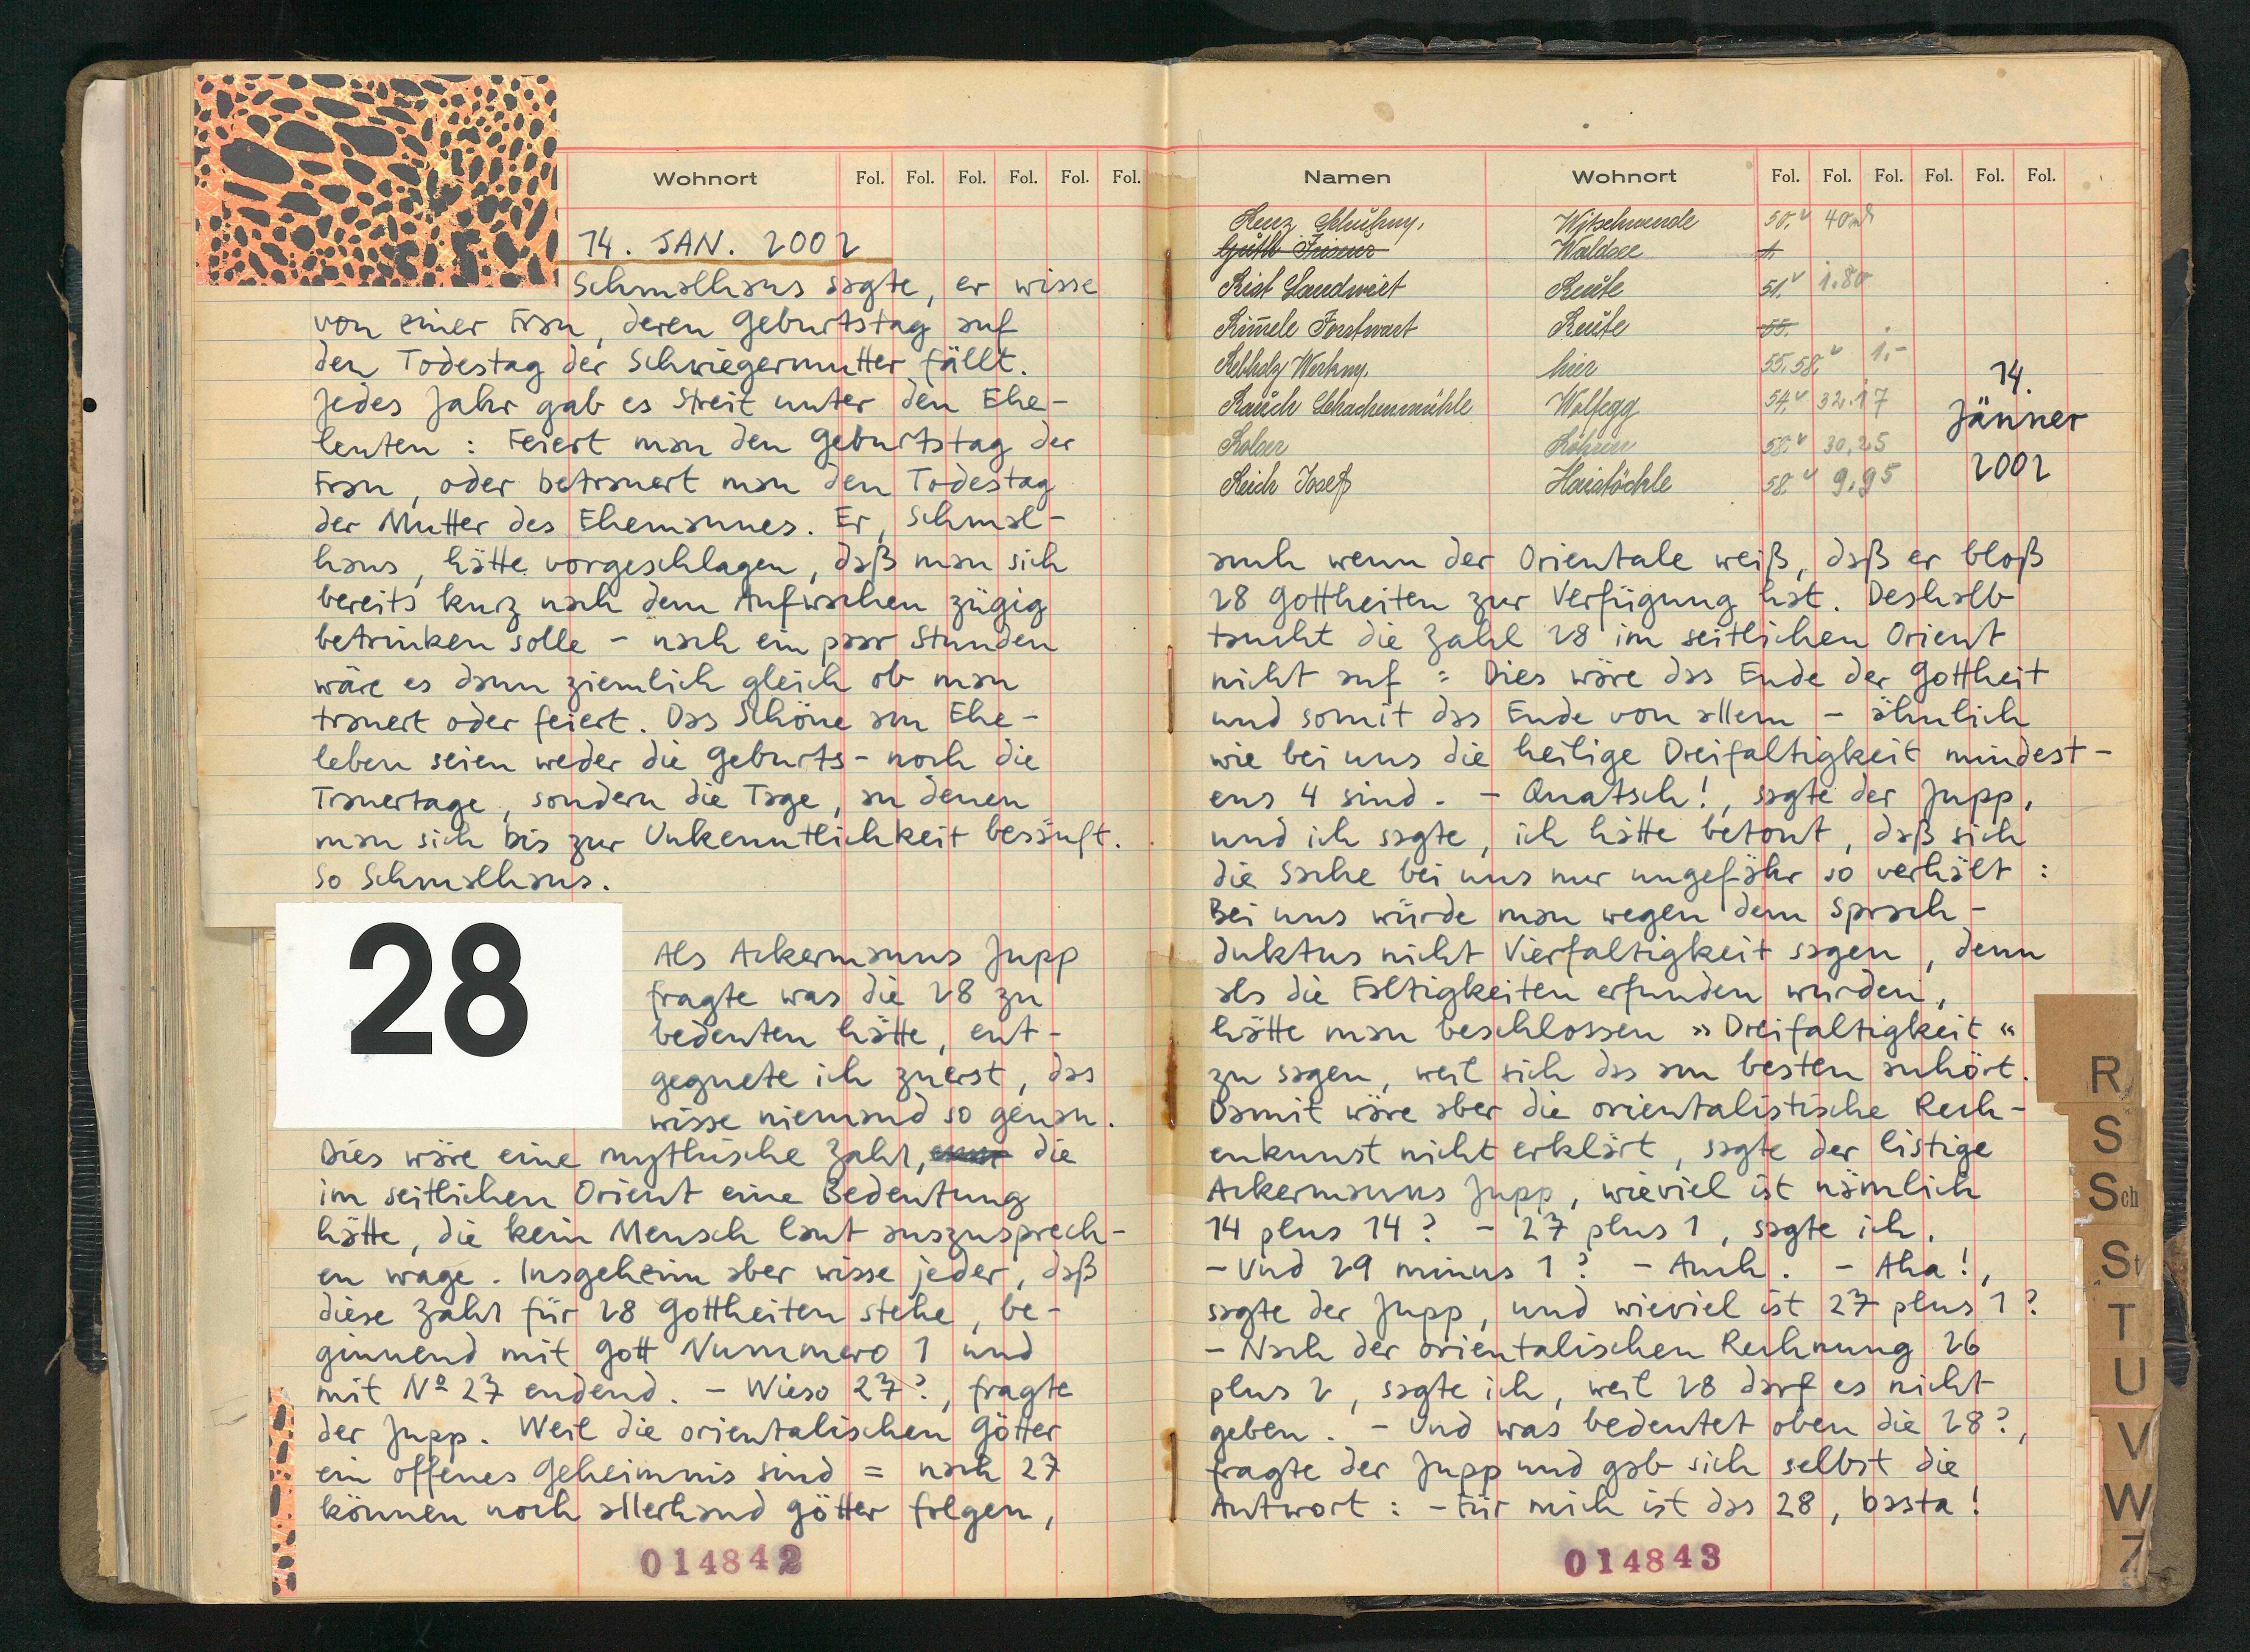 Wohnort Fol. Fol. Fol. Fol. Fol. Fol.
14. JAN. 2002
Schmalhans sagte, er wisse
von einer Frau, deren Geburtstag auf
den Todestag der Schwiegermutter fällt.
Jedes Jahr gab es Streit unter den Ehe-
leuten : Feiert man den Geburtstag der
Frau, oder betrauert man den Todestag
der Mutter des Ehemannes. Er, Schmal-
hans, hätte vorgeschlagen, daß man sich
bereits kurz nach dem Aufwachen zügig
betrinken solle – nach ein paar Stunden
wäre es dann ziemlich gleich ob man
trauert oder feiert. Das Schöne am Ehe-
leben seien weder die Geburts- noch die
Trauertage, sondern die Tage, an denen
man sich bis zur Unkenntlichkeit besäuft.
So Schmalhans.
28
Als Ackermanns Jupp
fragte was die 28 zu
bedeuten hätte, ent-
gegnete ich zuerst, das
wisse niemand so genau.
Dies wäre eine mythische Zahl, die
im seitlichen Orient eine Bedeutung
hätte, die kein Mensch laut auszusprech-
en wage. Insgeheim aber wisse jeder, daß
diese Zahl für 28 Gottheiten stehe, be-
ginnend mit Gott Nummero 1 und
mit Nº 27 endend. – Wieso 27?, fragte
der Jupp. Weil die orientalischen Götter
ein offenes Geheimnis sind = nach 27
können noch allerhand Götter folgen,
014842
Namen Wohnort Fol. Fol. Fol. Fol. Fol. Fol.
Waldsee
Rist Landwirt Reute 51. 1.80
Forstwart Reute 55.
Rebholz hier 55.58. 1.-
Rauch Schachenmühle Wolfegg 54. 32.17
58. 30,25
Reich Josef 58. 9.95
14.
Jänner
2002
auch wenn der Orientale weiß, daß er bloß
28 Gottheiten zur Verfügung hat. Deshalb
taucht die Zahl 28 im seitlichen Orient
nicht auf : Dies wäre das Ende der Gottheit
und somit das Ende von allem – ähnlich
wie bei uns die heilige Dreifaltigkeit mindest-
ens 4 sind. – Quatsch!, sagte der Jupp,
und ich sagte, ich hätte betont, daß sich
die Sache bei uns nur ungefähr so verhält :
Bei uns würde man wegen dem Sprach-
duktus nicht Vierfaltigkeit sagen, denn
als die Faltigkeiten erfunden wurden,
hätte man beschlossen »Dreifaltigkeit«
zu sagen, weil sich das am besten anhört.
Damit wäre aber die orientalistische Rech-
enkunst nicht erklärt, sagte der listige
Ackermanns Jupp, wieviel ist nämlich
14 plus 14? – 27 plus 1, sagte ich.
– Und 29 minus 1? – Auch. – Aha!,
sagte der Jupp, und wieviel ist 27 plus 1?
– Nach der orientalischen Rechnung 26
plus 2, sagte ich, weil 28 darf es nicht
geben. – Und was bedeutet oben die 28?,
fragte der Jupp und gab sich selbst die
Antwort : – Für mich ist das 28, basta!
014843
R
S
Sch
St
T
U
V
W
Z